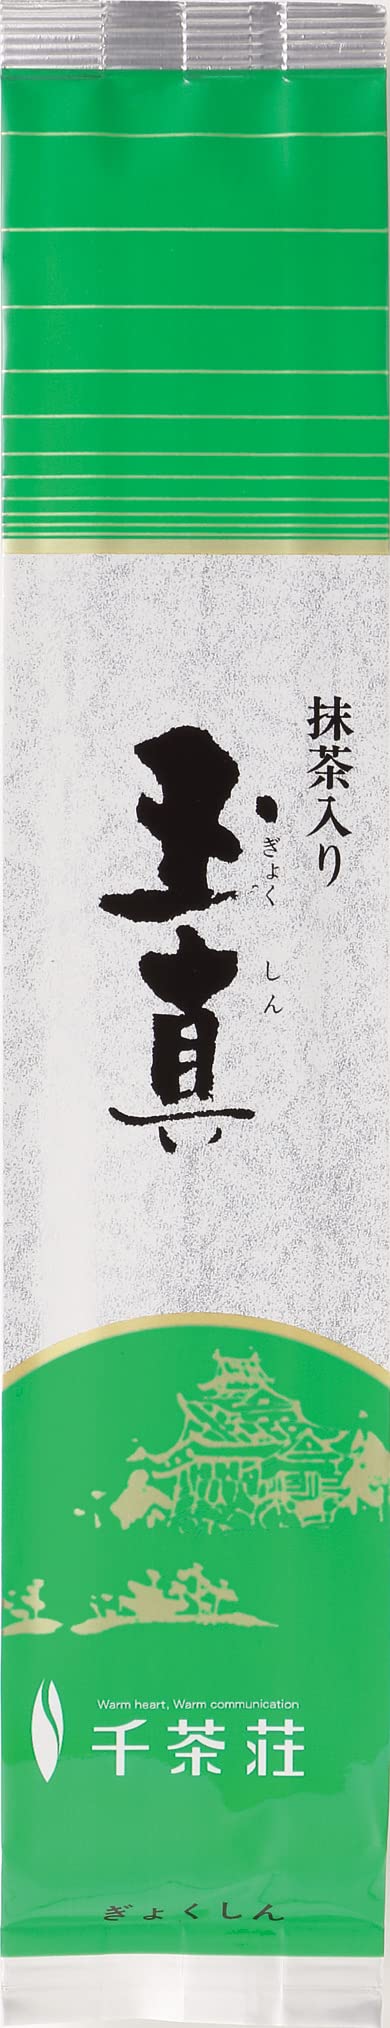 抹茶入り
玉真
ぎょくしん
Warm heart, Warm communication
千茶荘
ぎょくしん